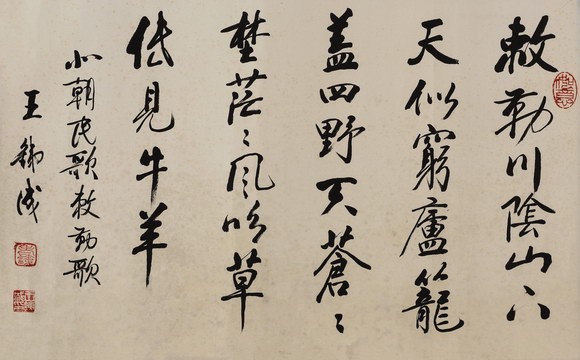 敕勒川陰山下
天似窮廬籠
蓋四野天蒼〻
埜茫〻風吹草
低見牛羊
北朝民歌敕勒歌
王銕成